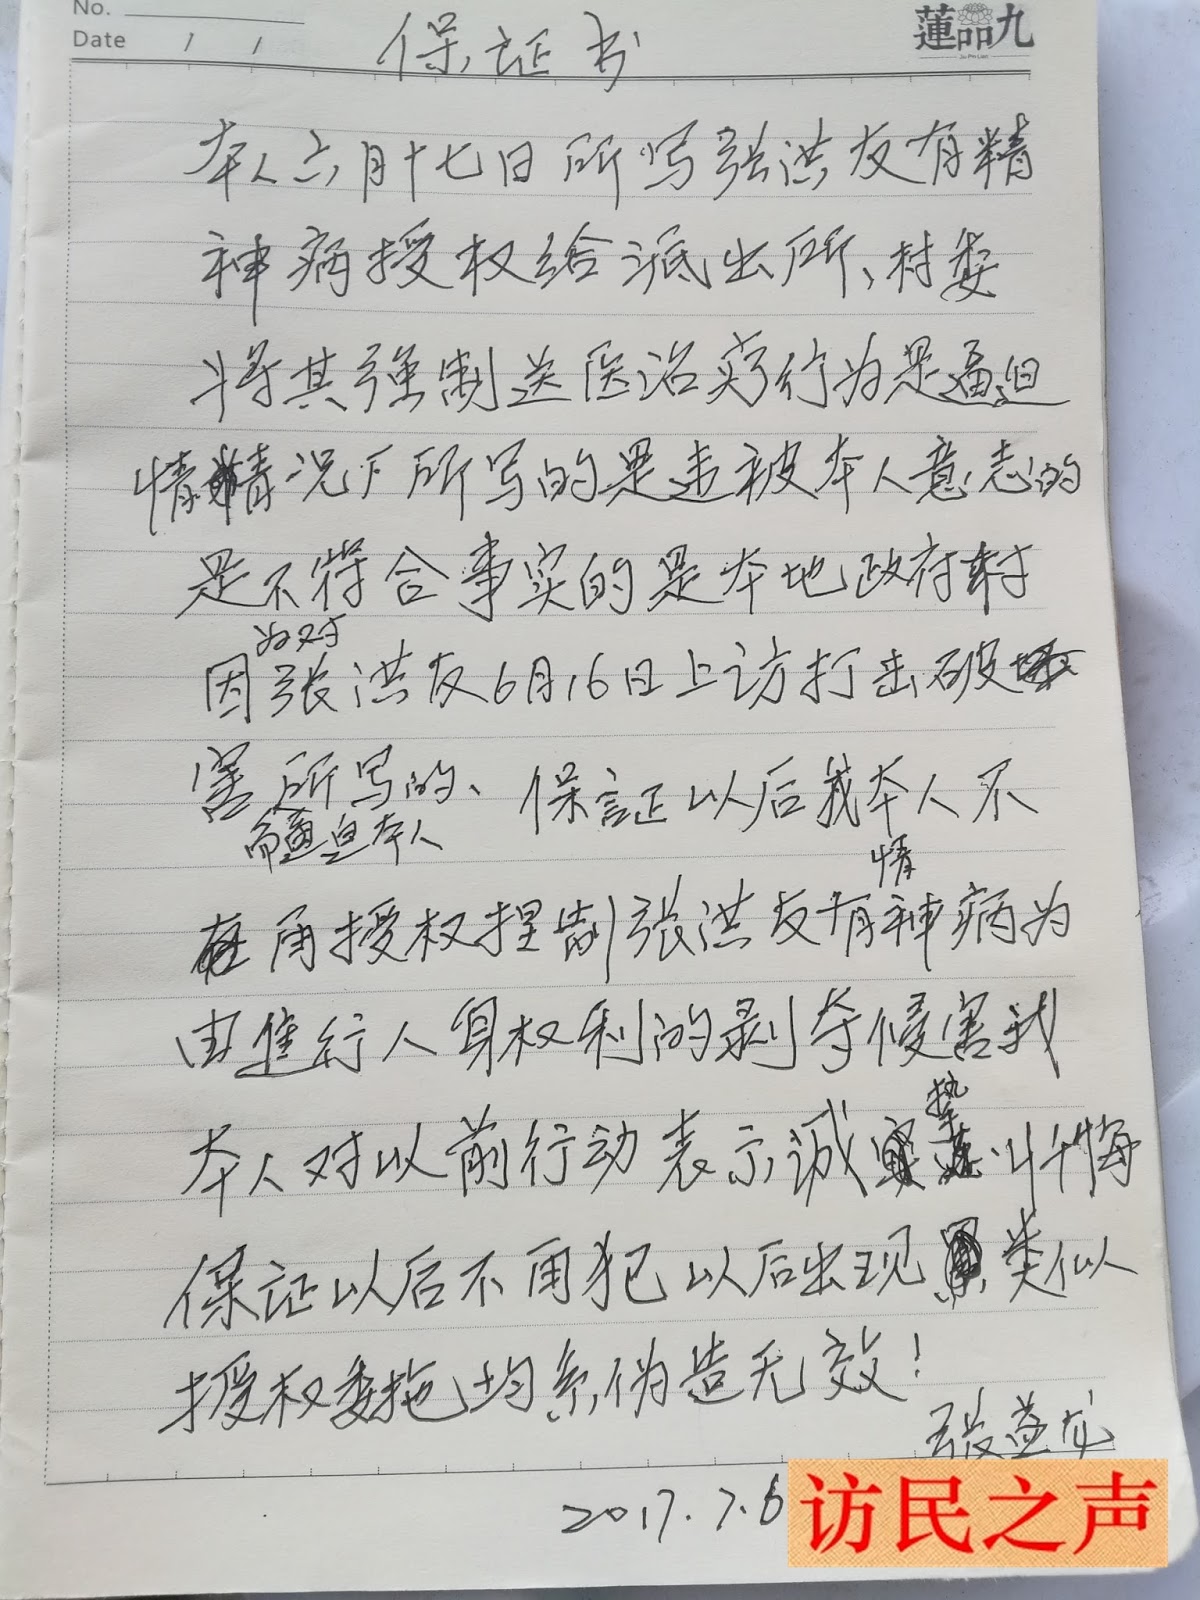 No.
Date / /
蓮品九
Jiu Pin Lian
保证书
本人六月十七日所写张洪友有精
神病授权给派出所、村委
将其强制送医治疗行为是逼迫
情情况下所写的是违被本人意志的
是不符合事实的是本地政府村
为对
因张洪友6月16日上访打击破
害所写的、保証以后我本人不
而逼迫本人
情
再授权捏制张洪友有神病为
由进行人身权利的剥夺侵害我
挚
本人对以前行动表示诚忏悔
保证以后不再犯以后出现类似
授权委拖均系伪造无效！
张益龙
2017.7.6
访民之声